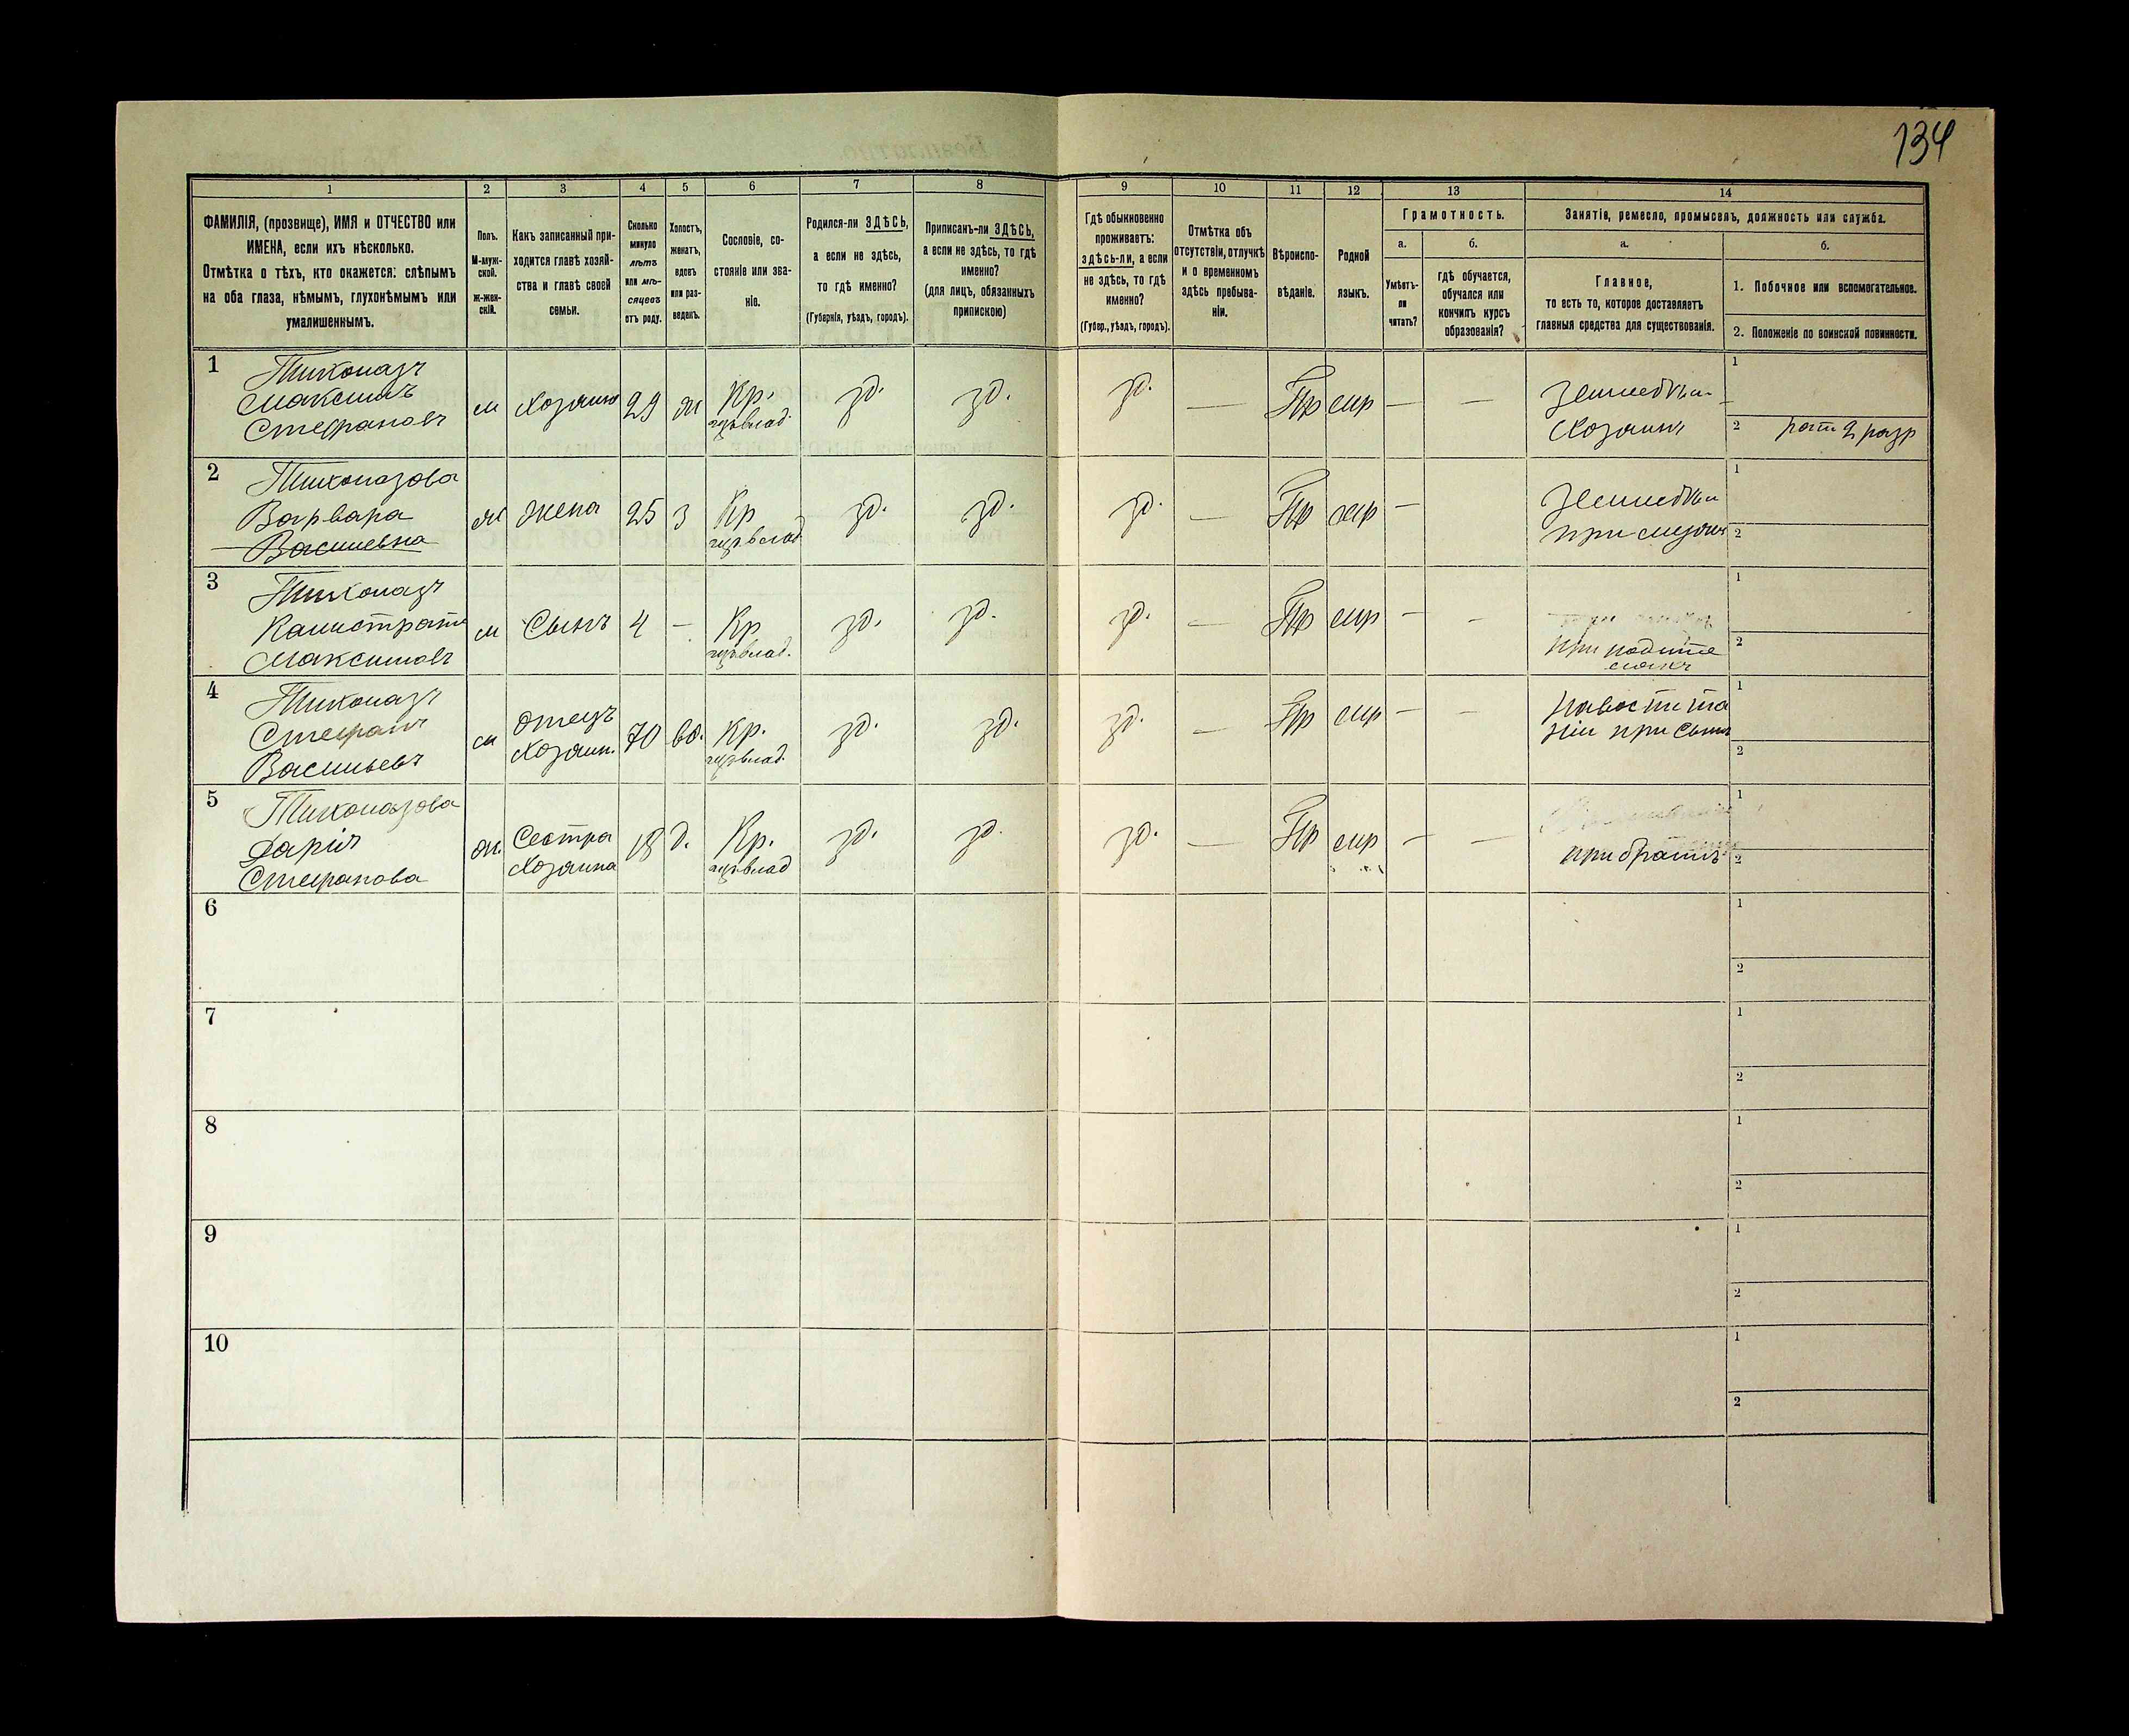 134
1 2 3 4 5 6 7 8 9 10 11 12 13 14
ФАМИЛІЯ, (прозвище), ИМЯ и ОТЧЕСТВО или
ИМЕНА, если ихъ нѣсколько.
Отмѣтка о тѣхъ, кто окажется: слѣпымъ
на оба глаза, нѣмымъ, глухонѣмымъ или
умалишеннымъ.
Полъ.
М-муж-
ской.
ж-жен-
скій.
Какъ записанный при-
ходится главѣ хозяй-
ства и главѣ своей
семьи.
Сколько
минуло
лѣтъ
или мѣ-
сяцевъ
отъ роду.
Холостъ,
женатъ,
вдовъ
или раз-
веденъ.
Сословіе, со-
стояніе или зва-
ніе.
Родился-ли ЗДѢСЬ,
а если не здѣсь,
то гдѣ именно?
(Губернія, уѣздъ, городъ).
Приписанъ-ли ЗДѢСЬ,
а если не здѣсь, то гдѣ
именно?
(для лицъ, обязанныхъ
припискою)
Гдѣ обыкновенно
проживаетъ:
здѣсь-ли, а если
не здѣсь, то гдѣ
именно?
(Губер., уѣздъ, городъ).
Отмѣтка объ
отсутствіи, отлучкѣ
и о временномъ
здѣсь пребыва-
ніи.
Вѣроиспо-
вѣданіе.
Родной
языкъ.
Грамотность.
а.
Умѣетъ-
ли
читать?
б.
гдѣ обучается,
обучался или
кончилъ курсъ
образованія?
Занятіе, ремесло, промыселъ, должность или служба.
а.
Главное,
то есть то, которое доставляетъ
главныя средства для существованія.
б.
1. Побочное или вспомогательное.
2. Положеніе по воинской повинности.
1
Максимъ
Стефановъ
м
Хозяинъ
29
ж
Кр.
зд.
зд.
зд.
—
Пр
—
—
Хозяинъ
1
2 рат 2 разр
2
Варвара
Васильевна
ж
жена
25
з
Кр
зд.
зд.
зд.
—
Пр
—
при
1
2
3
Максимовъ
м
Сынъ
4
—
Кр
зд.
зд.
зд.
—
Пр
—
-
при родите
ляхъ
1
2
4
Стефанъ
Васильевъ
м
Отецъ
Хозяин.
70
вд.
Кр.
зд.
зд.
зд.
—
Пр
—
—
при сынѣ
1
2
5
Дарія
Стефанова
ж.
Сестра
Хозяина
18
д.
Кр.
зд.
зд.
зд.
—
Пр
—
—
при братѣ
1
2
6
1
2
7
1
2
8
1
2
9
1
2
10
1
2